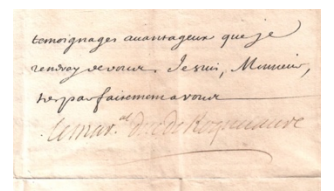 temoignages auantageux que je
rendray de vous. Je suis, Monsieur,
tres parfaitement a vous
Le mar.al duc de Roquelaure